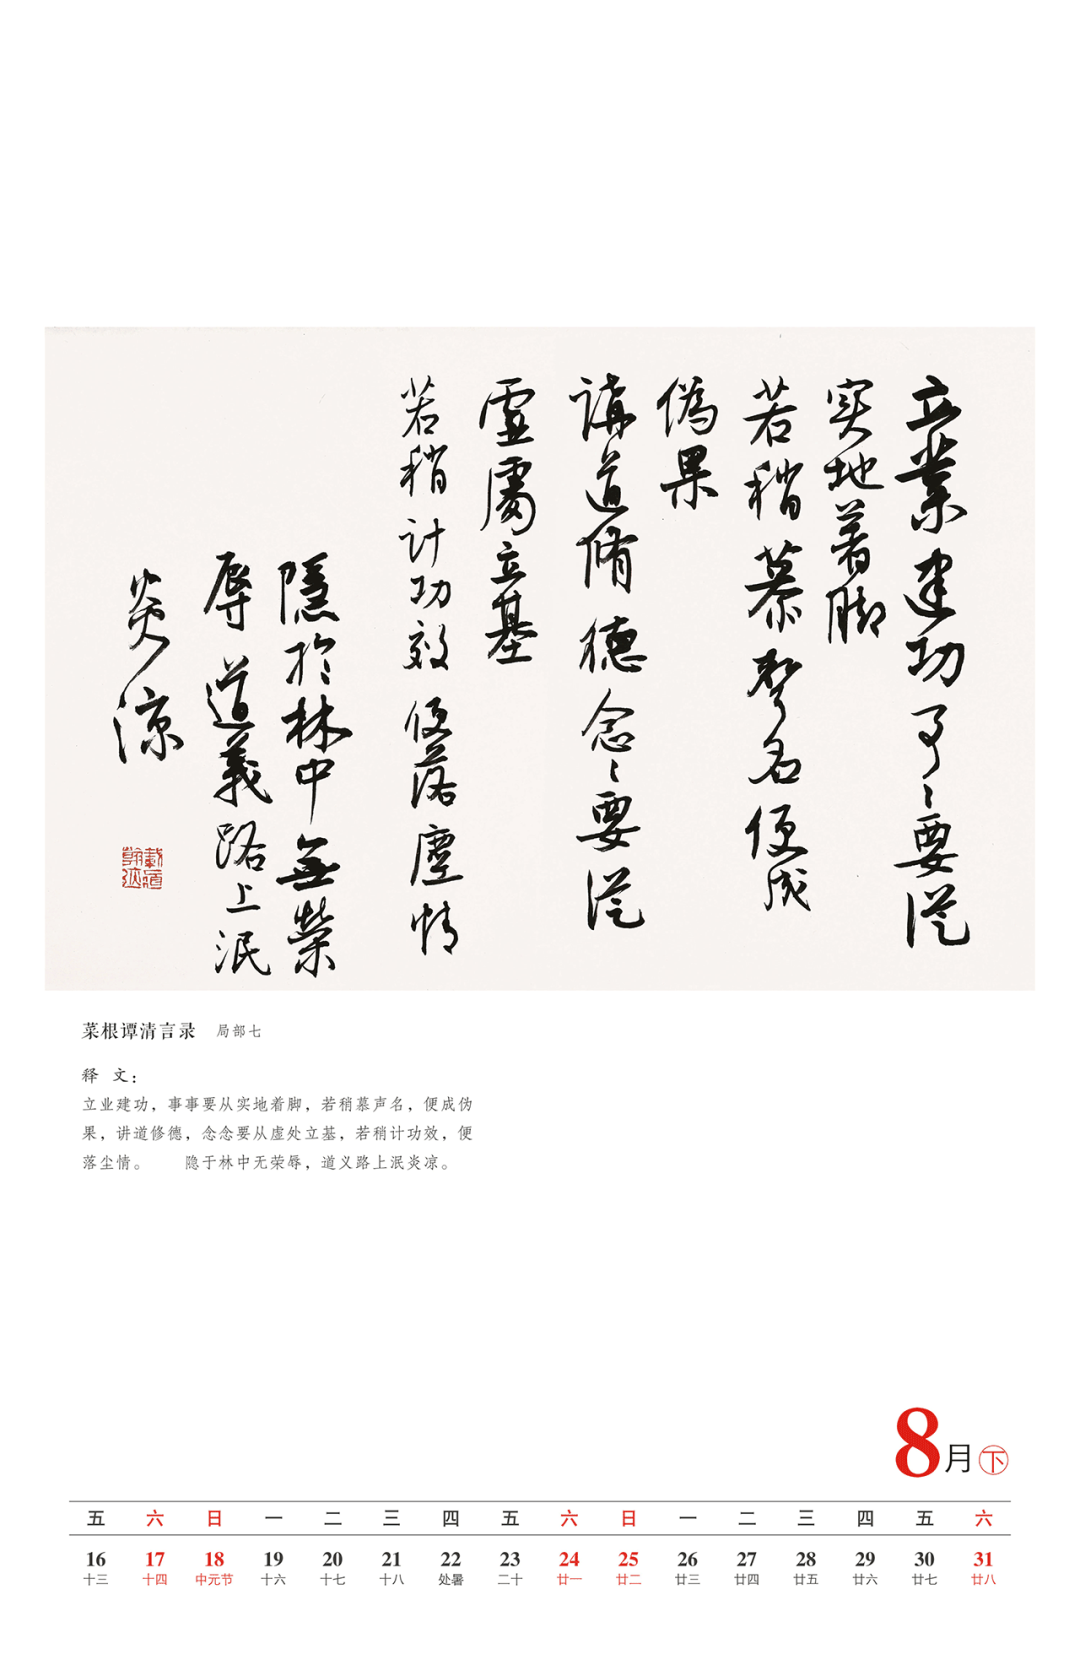 立業建功事〻要從
実地著脚
若稍慕聲名便成
偽果
講道脩德念〻要從
虛處立基
若稍计功效便落塵情
隱於林中無榮
辱道義路上泯
炎涼
菜根谭清言录 局部七
释 文：
立业建功，事事要从实地着脚，若稍慕声名，便成伪
果，讲道修德，念念要从虚处立基，若稍计功效，便
落尘情。 隐于林中无荣辱，道义路上泯炎凉。
8月 下
五 六 日 一 二 三 四 五 六 日 一 二 三 四 五 六
16 17 18 19 20 21 22 23 24 25 26 27 28 29 30 31
十三 十四 中元节 十六 十七 十八 处暑 二十 廿一 廿二 廿三 廿四 廿五 廿六 廿七 廿八